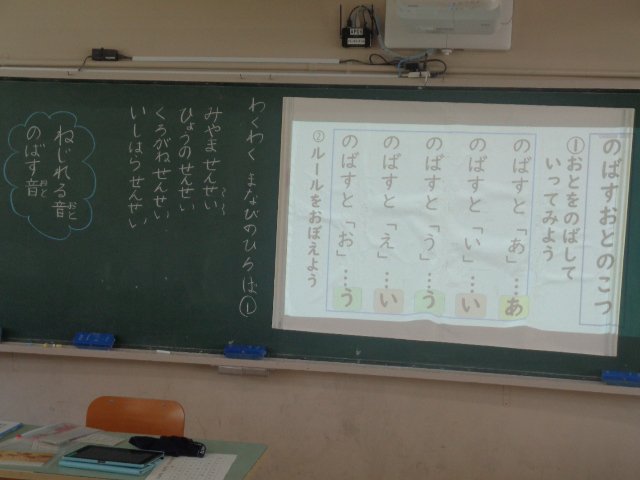 のばすおとのこつ
①おとをのばして
いってみよう
のばすと「あ」…あ
のばすと「い」…い
のばすと「う」…う
のばすと「え」…い
のばすと「お」…う
②ルールをおぼえよう
わくわく まなびのひろば①
みやませんせい
ひょうのせんせい
くろがねせんせい
いしはらせんせい
ねじれる音
おと
のばす音
おと